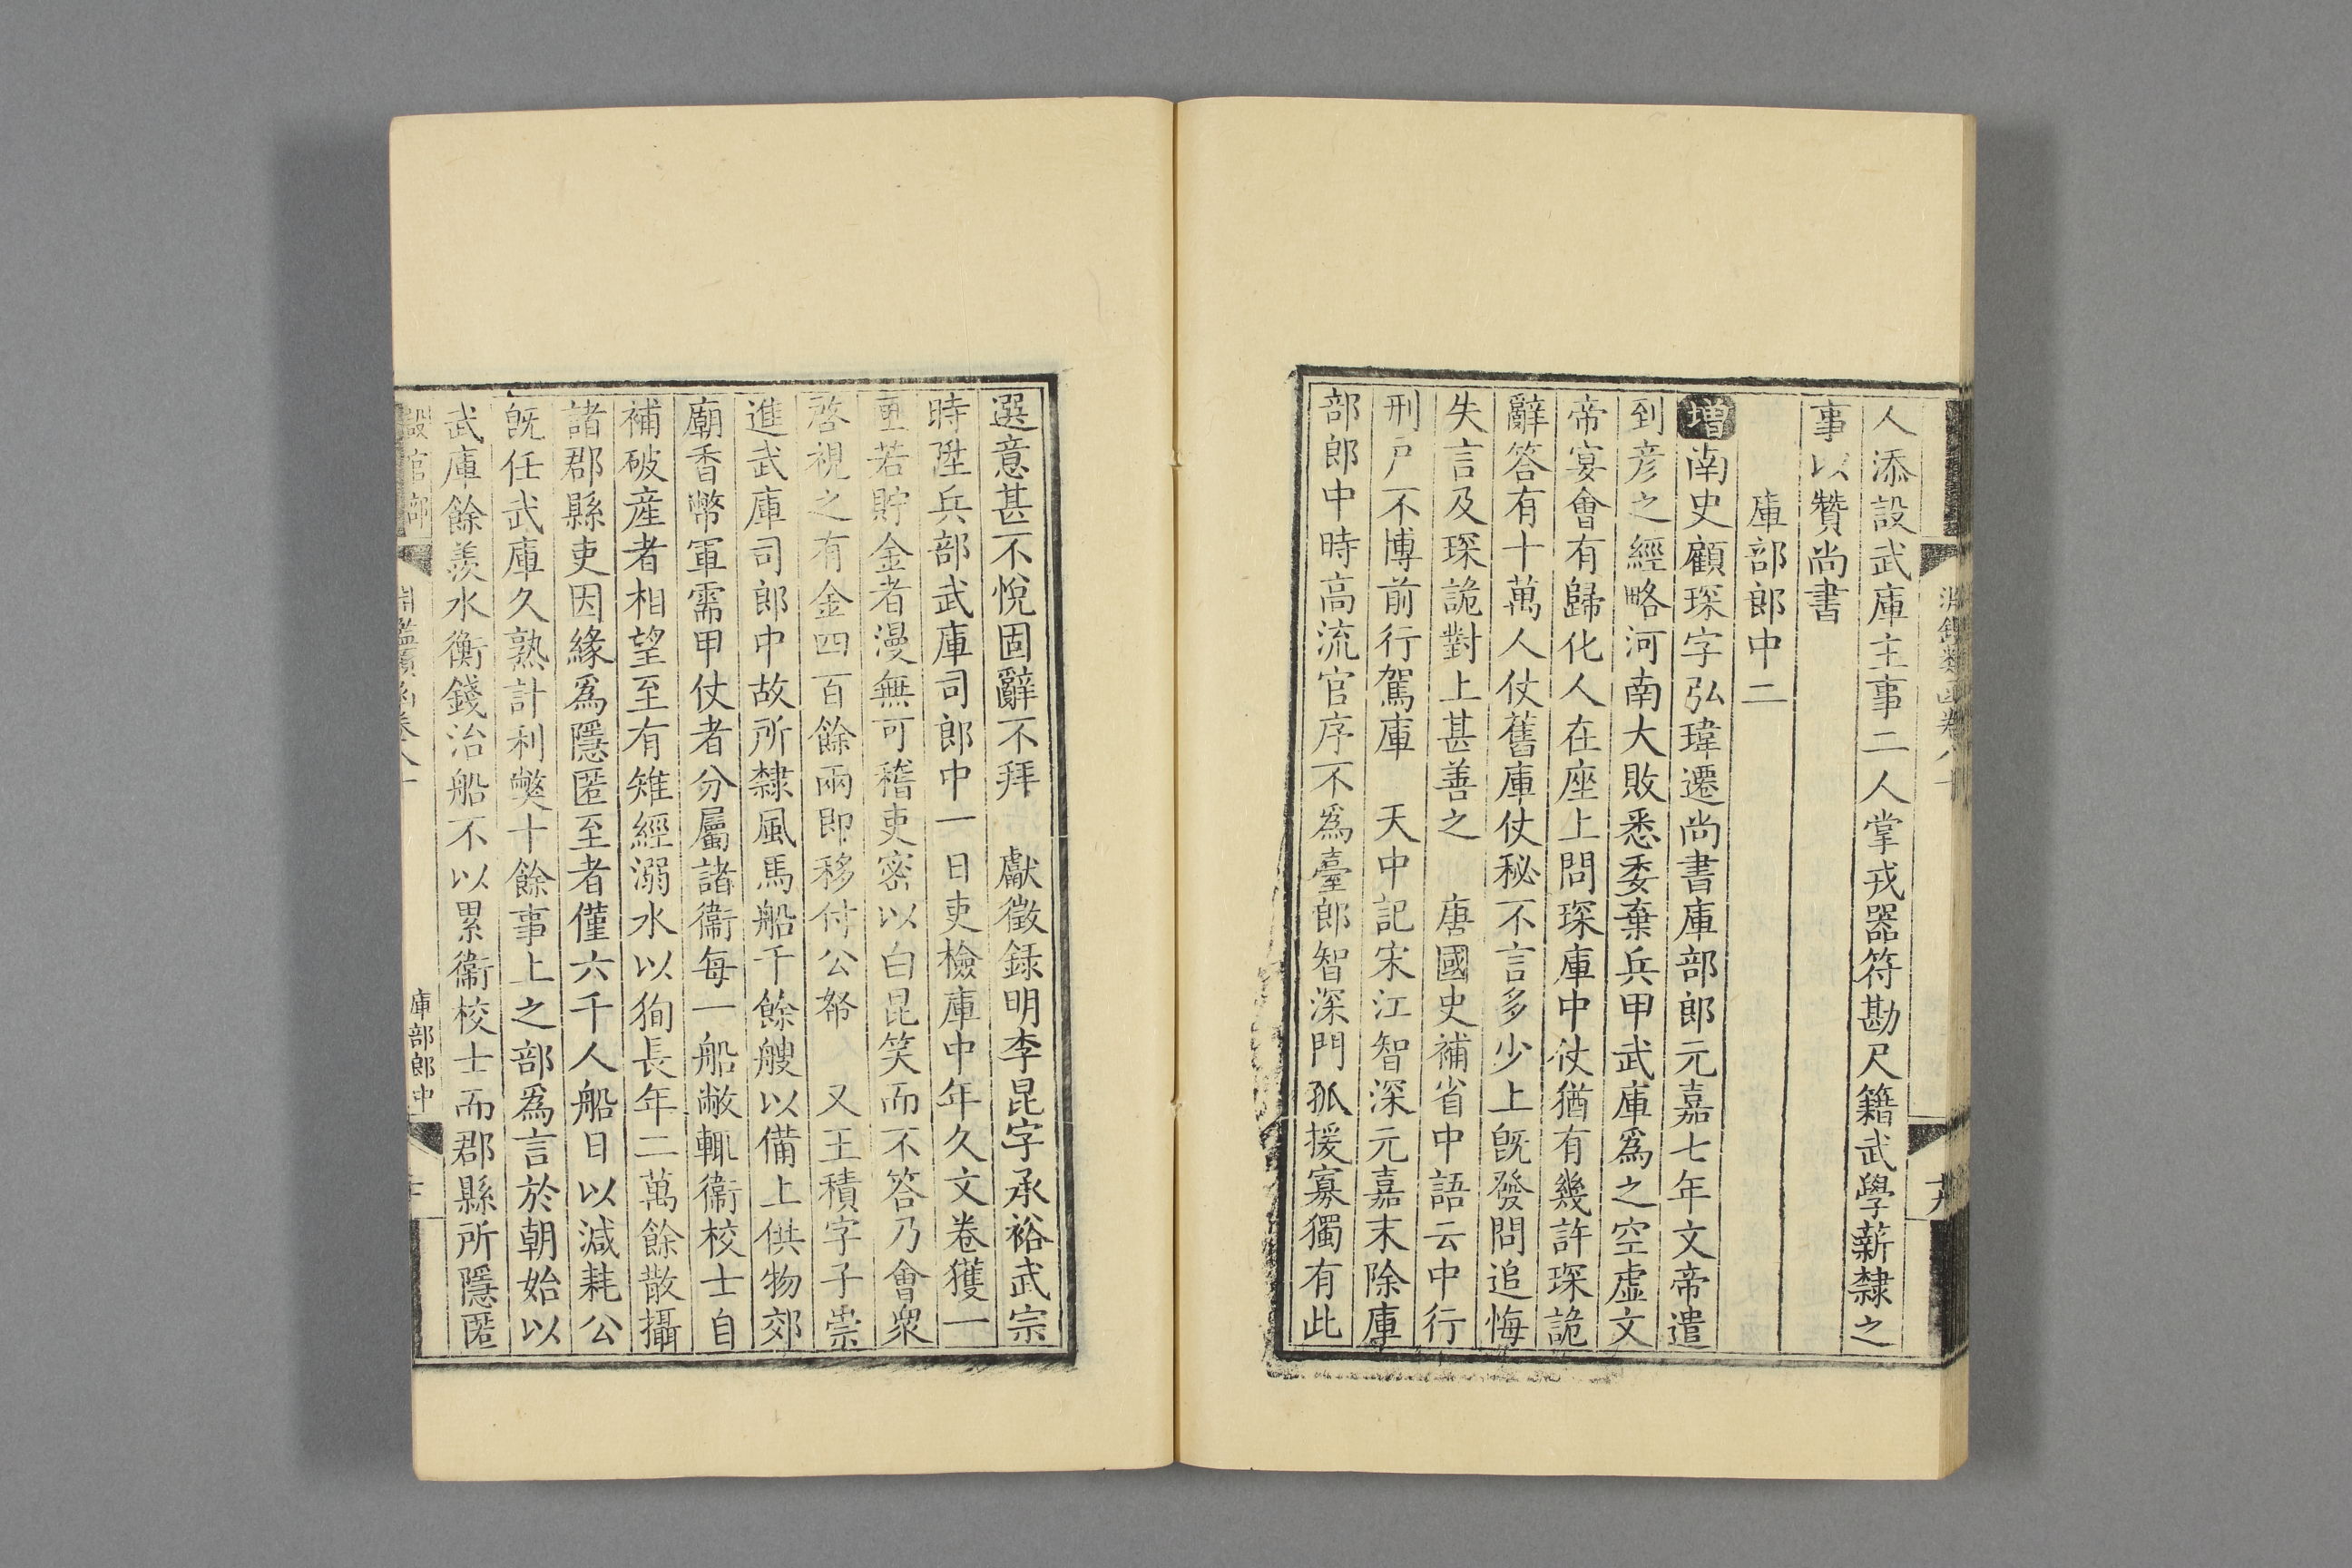 人添設武庫主事二人掌戎器符勘尺籍武學薪隸之
事以贊尚書
庫部郎中二
增南史顧琛字弘瑋遷尚書庫部郎元嘉七年文帝遣
到彦之經略河南大敗悉委棄兵甲武庫爲之空虚文
帝宴會有歸化人在座上問琛庫中仗猶有幾許琛詭
辭答有十萬人仗舊庫仗秘不言多少上旣發問追悔
失言及琛詭對上甚善之　唐國史補省中語云中行
刑戸不博前行駕庫　天中記宋江智深元嘉末除庫
部郎中時高流官序不爲臺郎智深門孤援寡獨有此
選意甚不悅固辭不拜　獻徵録明李昆字承裕武宗
時陞兵部武庫司郎中一日吏檢庫中年久文卷獲一
匣若貯金者漫無可稽吏密以白昆笑而不答乃會衆
啓視之有金四百餘兩即移付公帑　又王積字子崇
進武庫司郎中故所隸風馬船千餘艘以備上供物郊
廟香幣軍需甲仗者分屬諸衞每一船敝輒衞校士自
補破産者相望至有雉經溺水以狥長年二萬餘散攝
諸郡縣吏因緣爲隱匿至者僅六千人船日以減耗公
旣任武庫久熟計利弊十餘事上之部爲言於朝始以
武庫餘羨水衡錢治船不以累衞校士而郡縣所隱匿
庫部郎中